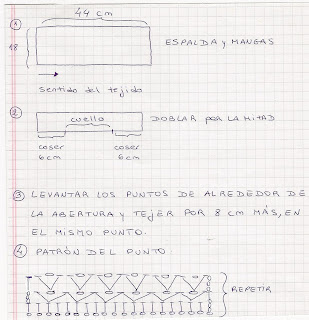 44 cm
①
18
ESPALDA Y MANGAS
sentido del tejido
②
cuello
DOBLAR POR LA MITAD
coser
6 cm
coser
6 cm
③ LEVANTAR LOS PUNTOS DE ALREDEDOR DE
LA ABERTURA Y TEJER POR 8 CM MÁS, EN
EL MISMO PUNTO.
④ PATRÓN DEL PUNTO
REPETIR